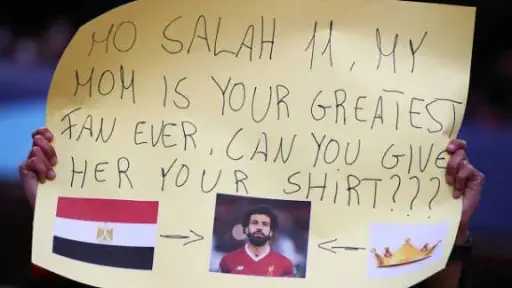 MO SALAH 11, MY
MOM IS YOUR GREATEST
FAN EVER. CAN YOU GIVE
HER YOUR SHIRT???